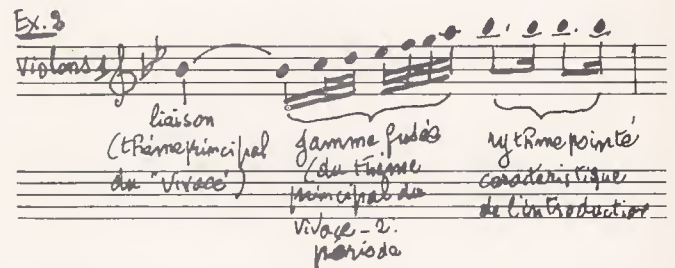 Ex. 3
Violons 1
liaison
(thème principal
du "Vivace")
gamme fusée
(du thème
principal du
Vivace - 2.
période
rythme pointé
caractéristique
de l'introduction